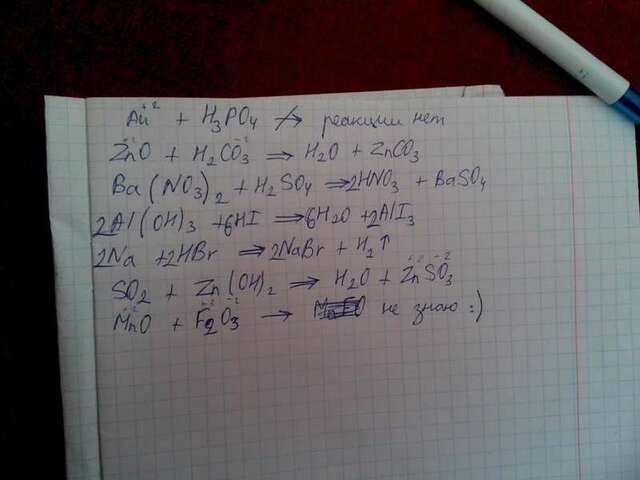 Au⁺² + H₃PO₄ ↛ реакции нет
Zn⁺²O + H₂CO₃⁻² ⇒ H₂O + ZnCO₃
Ba(NO₃)₂ + H₂SO₄ ⇒ 2HNO₃ + BaSO₄
2Al(OH)₃ + 6HI ⇒ 6H₂O + 2AlI₃
2Na + 2HBr ⇒ 2NaBr + H₂↑
SO₂ + Zn(OH)₂ ⇒ H₂O + Zn⁺²SO₃⁻²
Mn⁺²O + F₂⁺³O₃⁻² → не знаю :)